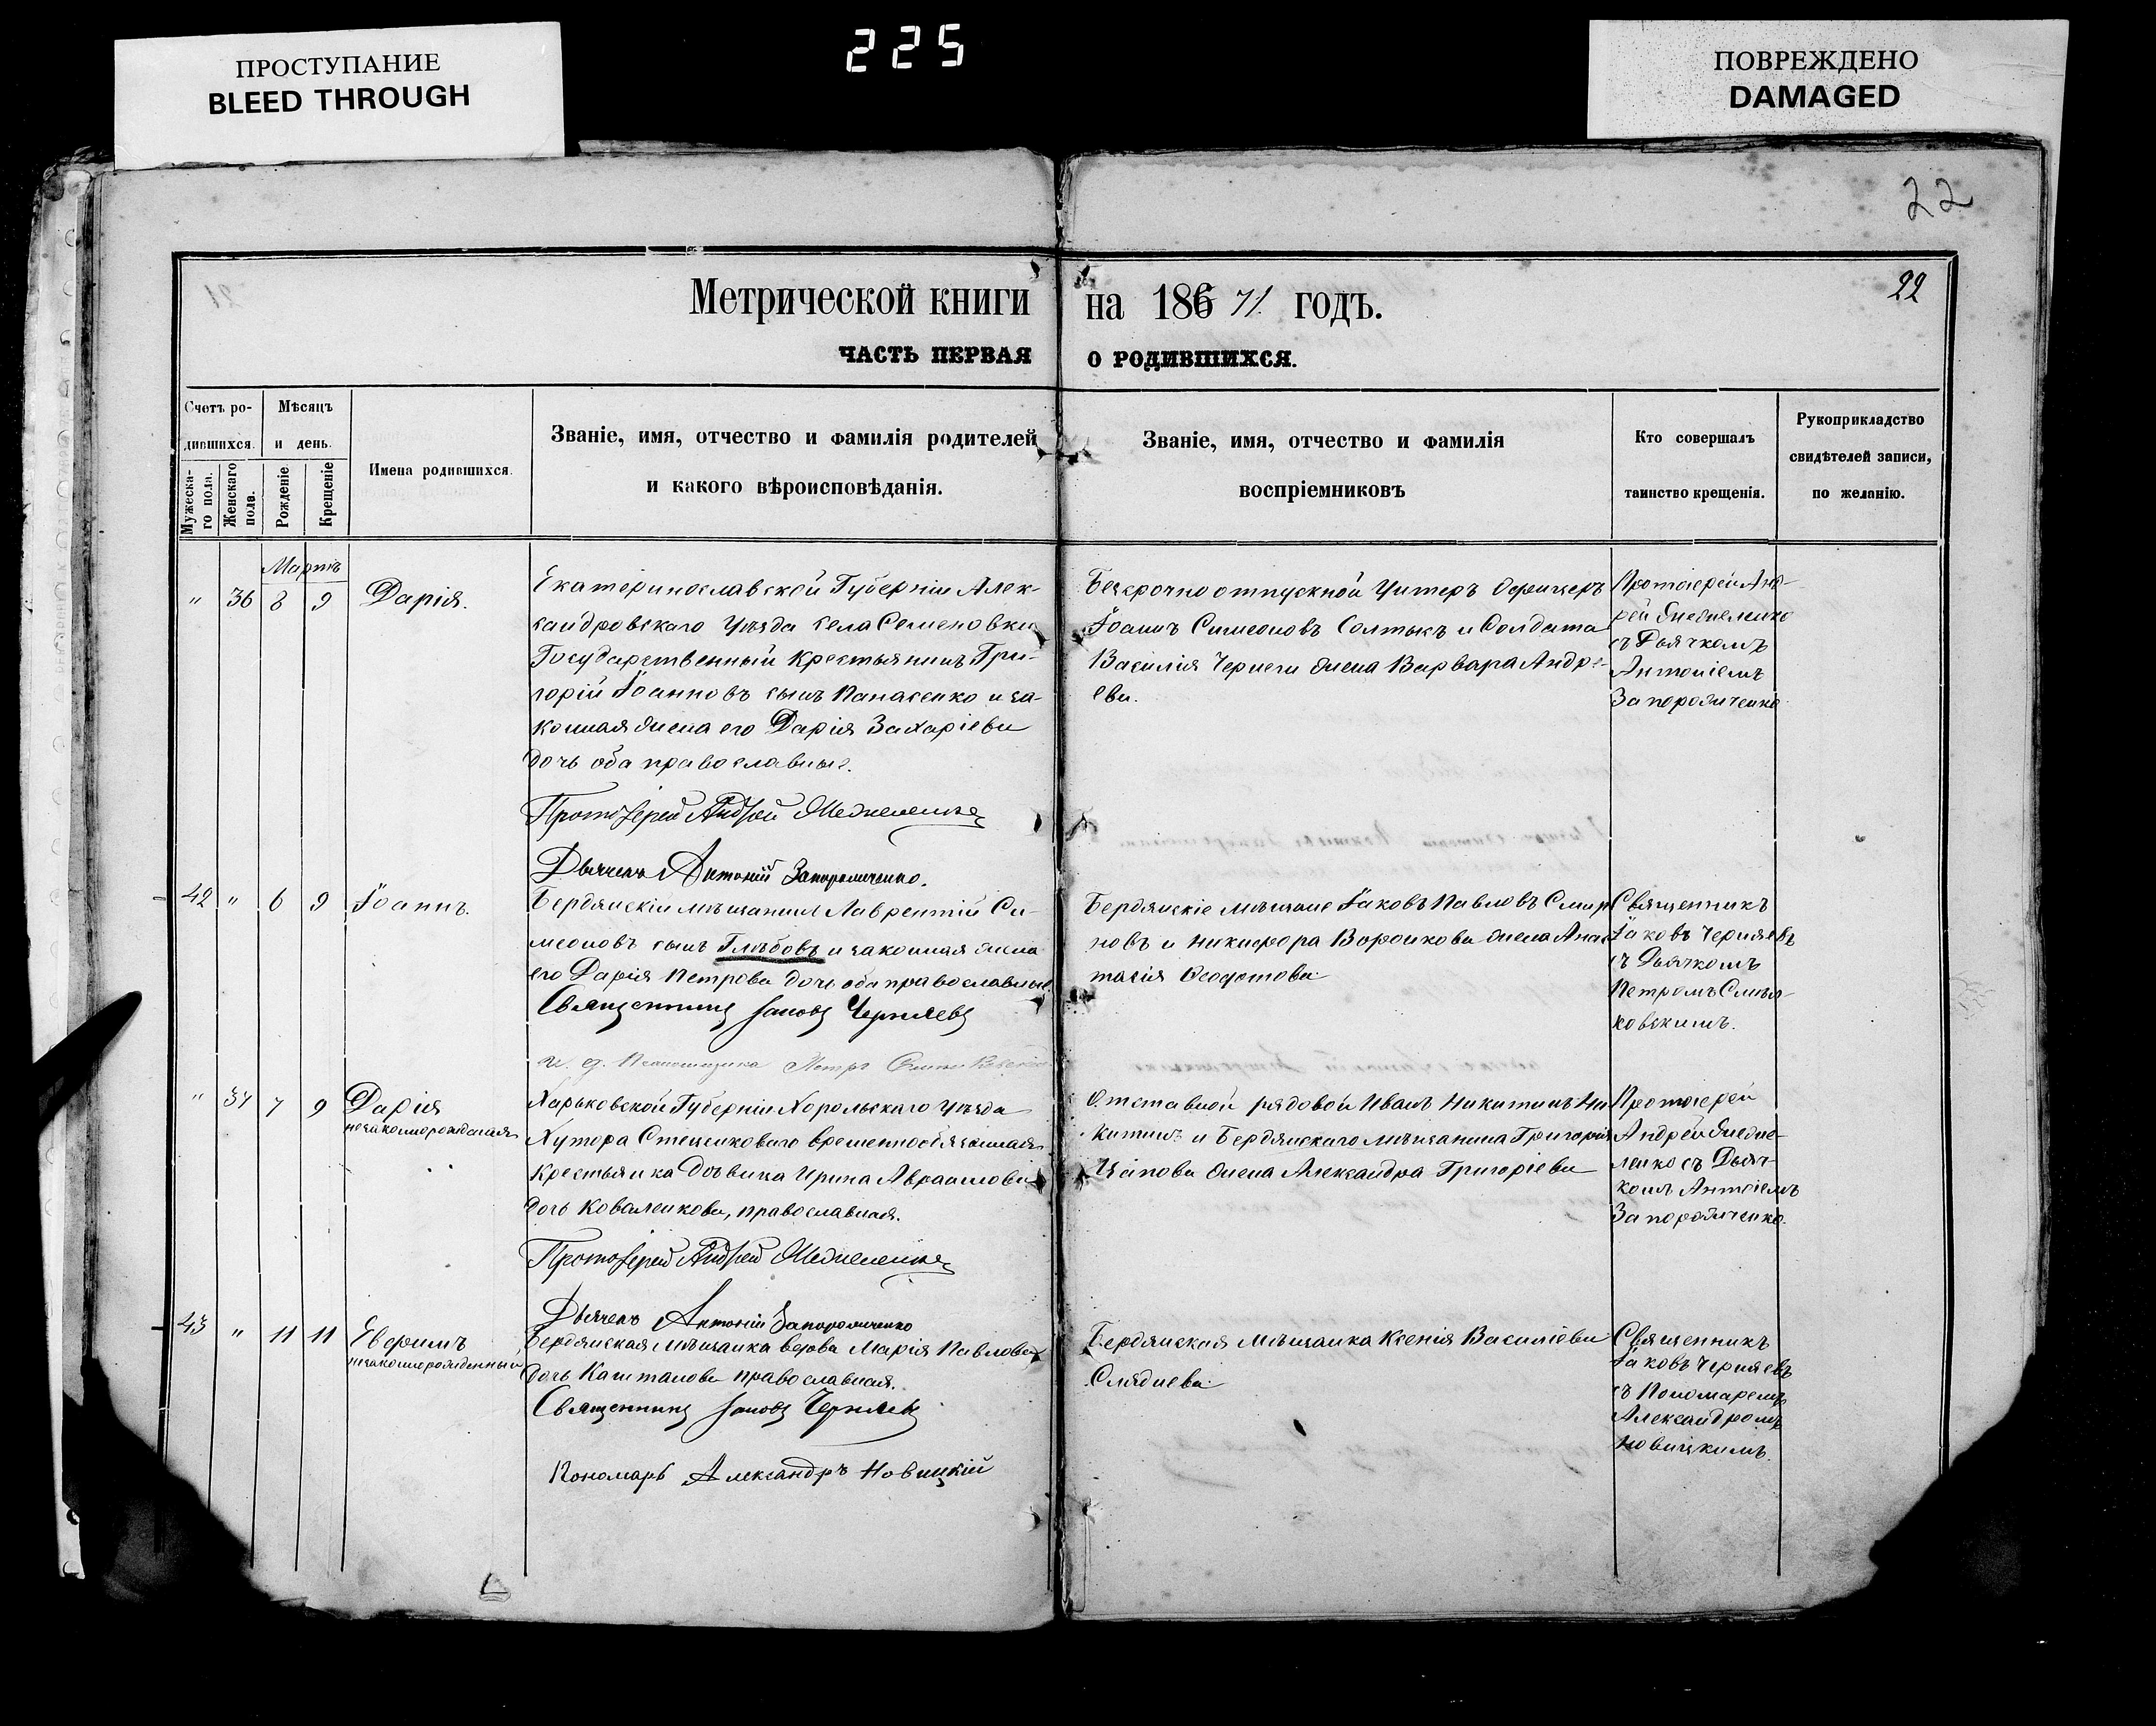 ПРОСТУПАНИЕ
BLEED THROUGH
225
ПОВРЕЖДЕНО
DAMAGED
22
22
Метрической книги на 186 71 годъ.
ЧАСТЬ ПЕРВАЯ О РОДИВШИХСЯ.
Счетъ ро-
дившихся.
Мужеска-
го пола.
Женскаго
пола.
Мѣсяцъ
и день.
Рожденіе
Крещеніе
Имена родившихся.
Званіе, имя, отчество и фамилія родителей
и какого вѣроисповѣданія.
Званіе, имя, отчество и фамилія
воспріемниковъ
Кто совершалъ
таинство крещенія.
Рукоприкладство
свидѣтелей записи,
по желанію.
Мартъ
" 36 8 9 Дарія.
Екатеринославской Губерніи Алек-
сандровскаго Уѣзда села Семеновки
Государственный крестьянинъ Гри-
горій Іоанновъ сынъ Панасенко и за-
конная жена его Дарія Захаріева
дочь оба православные.
Протоіерей Андрей
Дьячекъ Антоній Запорожченко.
Безсрочно отпускной Унтеръ Офицеръ
Іоаннъ Симеоновъ Солтыкъ и Солдата
Василія Чернеги жена Варвара Андре-
ева.
Протоіерей Анд-
рей
съ Дьячкомъ
Антоніемъ
Запорожченко
42 " 6 9 Іоаннъ.
Бердянскій мѣщанинъ Лаврентій Си-
меоновъ сынъ Глѣбовъ и законная жена
его Дарія Петрова дочь оба православные.
Священникъ Іаковъ Черняевъ
и. д. Псаломщика Петръ
Бердянскіе мѣщане Іаковъ Павловъ Смир-
новъ и Никифора Воронкова жена Анас-
тасія Ѳеодотова
Священникъ
Іаковъ Черняевъ
съ Дьячкомъ
Петромъ
ковскимъ.
" 37 7 9 Дарія
незаконнорожденая
Харьковской Губерніи Хорольскаго Уѣзда
Хутора Стеценковаго временнообязанная
крестьянка Дѣвица Ирина Авраамова
дочь Коваленкова, православная.
Протоіерей Андрей
Дьячекъ Антоній Запорожченко
Отставной рядовой Иванъ Никитинъ Ни-
китинъ и Бердянскаго мѣщанина Григорія
жена Александра Григоріева
Протоіерей
Андрей
ленко съ Дьяч-
комъ Антоніемъ
Запорожченко.
43 " 11 11 Евфимъ
незаконнорожденный
Бердянская мѣщанка вдова Марія Павлова
дочь Каштанова православная.
Священникъ Іаковъ Черняевъ
Пономарь Александръ Новицкій
Бердянская мѣщанка Ксенія Василіева
Священникъ
Іаковъ Черняевъ
съ Пономаремъ
Александромъ
Новицкимъ.